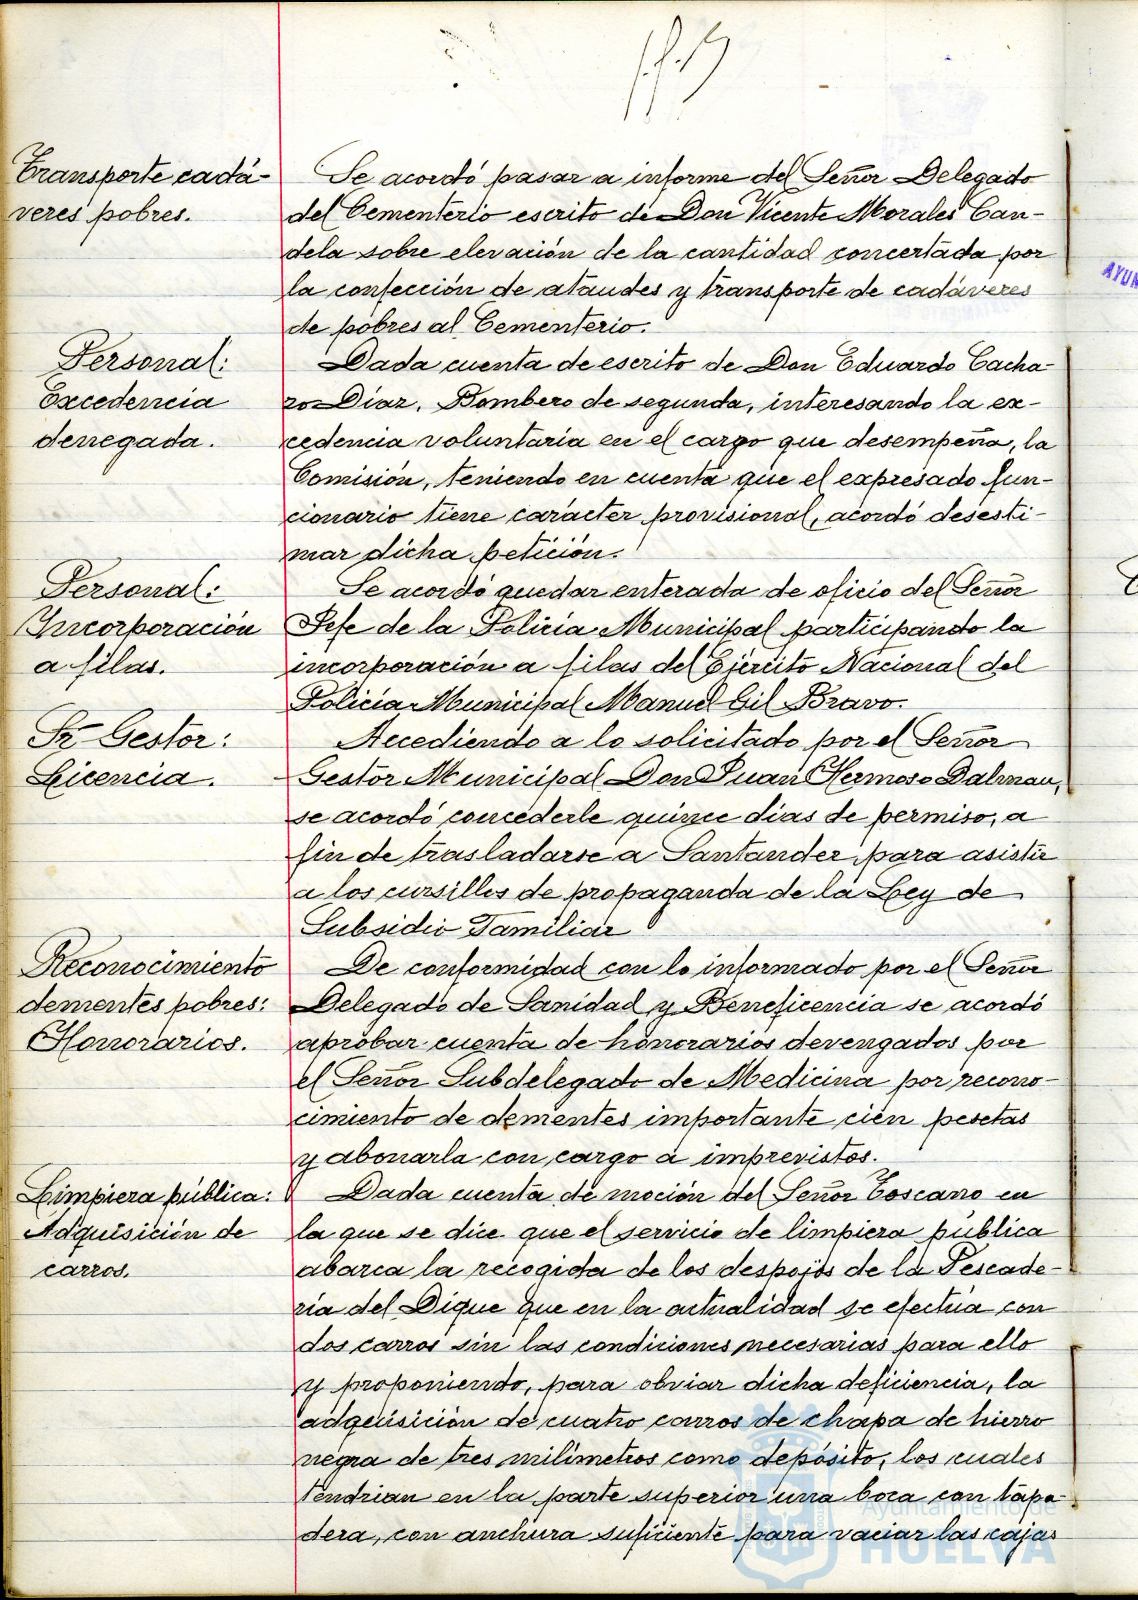 Transporte cadá-
veres pobres.
Se acordó pasar a informe del Señor Delegado
del Cementerio escrito de Don Vicente Morales Can-
dela sobre elevación de la cantidad concertada por
la confección de ataudes y transporte de cadáveres
de pobres al Cementerio.
Personal:
Excedencia
denegada.
Dada cuenta de escrito de Don Eduardo Cacha-
ro Díaz, Bombero de segunda, interesando la ex-
cedencia voluntaria en el cargo que desempeña, la
Comisión, teniendo en cuenta que el expresado fun-
cionario tiene carácter provisional, acordó desesti-
mar dicha petición.
Personal:
Incorporación
a filas.
Se acordó quedar enterada de oficio del Señor
Jefe de la Policía Municipal participando la
incorporación a filas del Ejército Nacional del
Policía Municipal Manuel Gil Bravo.
Sr Gestor:
Licencia.
Accediendo a lo solicitado por el Señor
Gestor Municipal Don Juan Hermoso Dalmau,
se acordó concederle quince días de permiso, a
fin de trasladarse a Santander para asistir
a los cursillos de propaganda de la Ley de
Subsidio Familiar
Reconocimiento
dementes pobres:
Honorarios.
De conformidad con lo informado por el Señor
Delegado de Sanidad y Beneficencia se acordó
aprobar cuenta de honorarios devengados por
el Señor Subdelegado de Medicina por recono-
cimiento de dementes importante cien pesetas
y abonarla con cargo a imprevistos.
Limpieza pública:
Adquisición de
carros.
Dada cuenta de moción del Señor Toscano en
la que se dice que el servicio de limpieza pública
abarca la recogida de los despojos de la Pescade-
ría del Dique que en la actualidad se efectúa con
dos carros sin las condiciones necesarias para ello
y proponiendo, para obviar dicha deficiencia, la
adquisición de cuatro carros de chapa de hierro
negra de tres milímetros como depósito, los cuales
tendrían en la parte superior una boca con tapa-
dera, con anchura suficiente para vaciar las cajas
Ayuntamiento de
HUELVA
AYUN